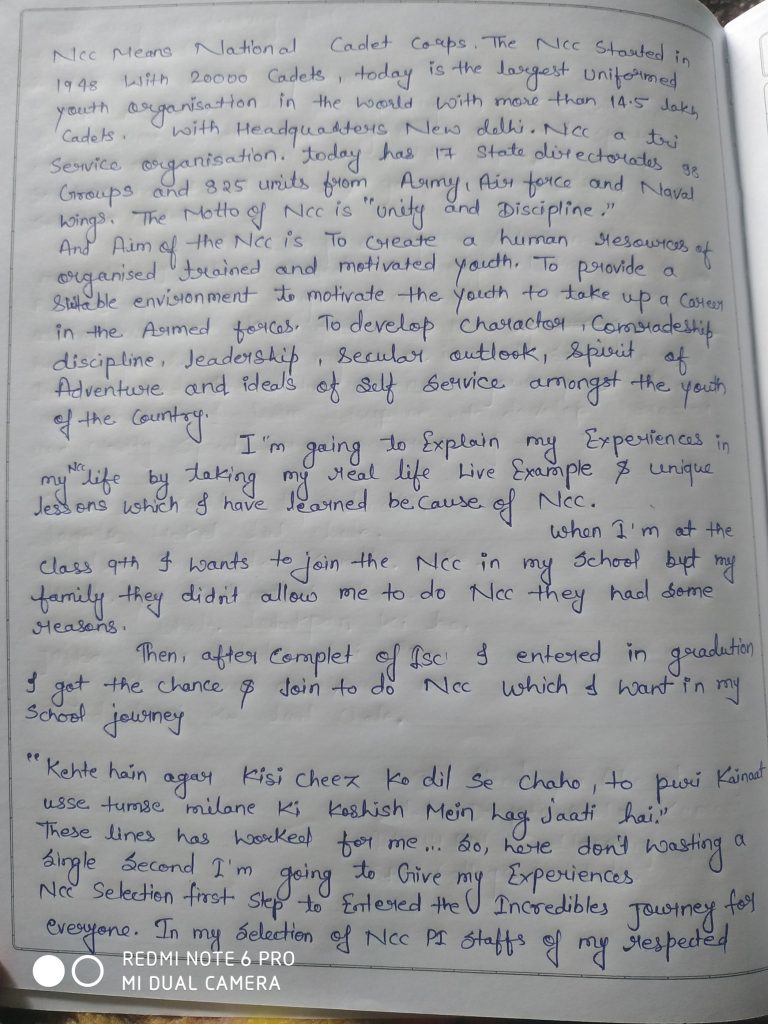 Ncc Means National Cadet Corps. The Ncc Started in
1948 With 20000 Cadets, today is the largest uniformed
youth organisation in the world with more than 14.5 lakh
Cadets. with Headquaters New delhi. Ncc a tri
Service organisation. today has 17 State directorates 98
Groups and 825 units from Army, Air force and Naval
wings. The Motto of Ncc is "Unity and Discipline."
And Aim of the Ncc is To Create a human resources of
organised trained and motivated youth. To provide a
Suitable environment to motivate the youth to take up a Career
in the Armed forces. To develop charactor, Comradeship
discipline, leadership, Secular outlook, Spirit of
Adventure and ideals of Self Service amongst the youth
of the Country.
I'm gaing to Explain my Experiences in
my Ncc life by taking my real life Live Example & unique
lessons which I have learned because of Ncc.
when I'm at the
Class 9th I wants to join the Ncc in my School but my
family they didn't allow me to do Ncc they had some
reasons.
Then, after Complet of Isc I entered in gradution
I got the chance & Join to do Ncc which I want in my
School journey
"Kehte hain agar Kisi cheez Ko dil se chaho, to puri Kainaat
usse tumse milane Ki Koshish Mein lag jaati hai."
These lines has worked for me... So, here don't wasting a
single second I'm going to Give my Experiences
Ncc Selection first Step to Entered the Incredibles Journey for
everyone. In my Selection of Ncc PI Staffs of my respected
REDMI NOTE 6 PRO
MI DUAL CAMERA